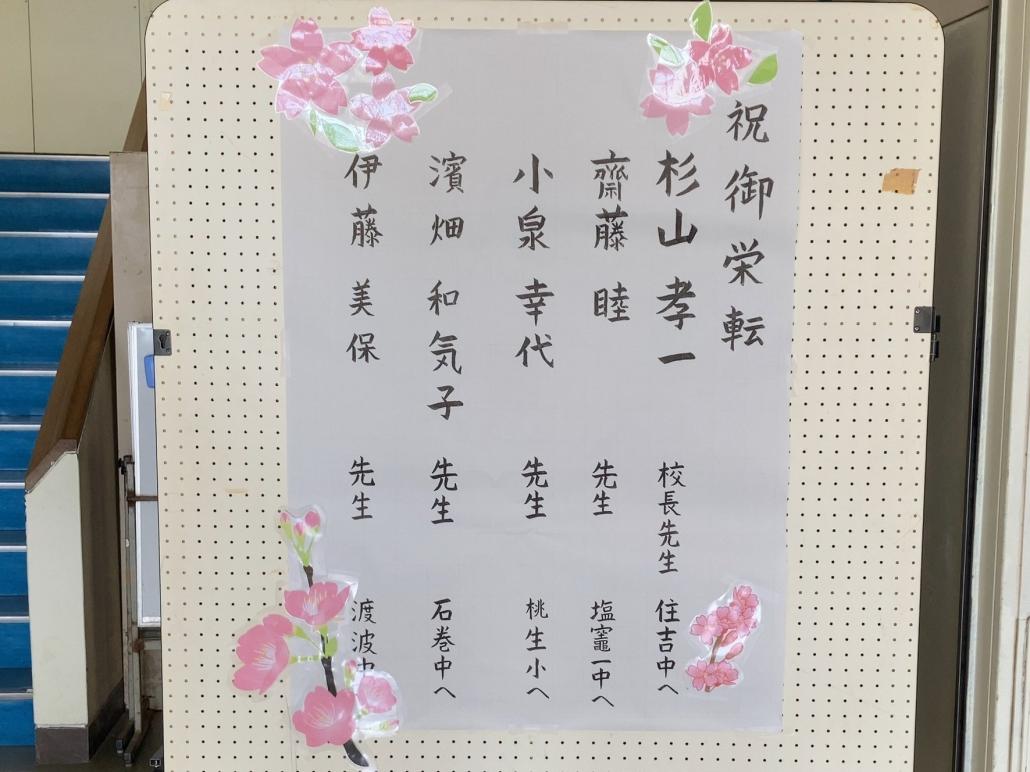 祝御栄転
杉山 孝一 校長先生 住吉中へ
齋藤 睦 先生 塩竈一中へ
小泉 幸代 先生 桃生小へ
濱畑 和気子 先生 石巻中へ
伊藤 美保 先生 渡波中